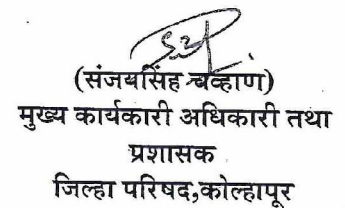 (संजयसिंह चव्हाण)
मुख्य कार्यकारी अधिकारी तथा
प्रशासक
जिल्हा परिषद,कोल्हापूर